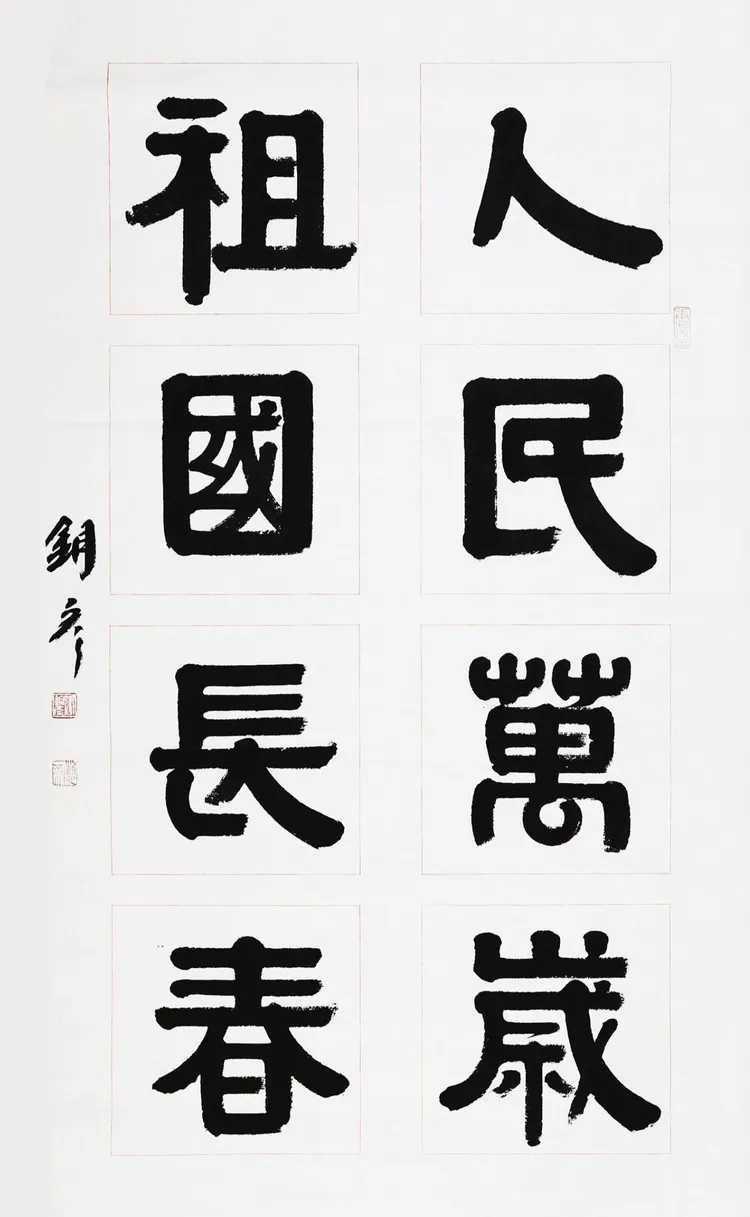 人民萬歲
祖國長春